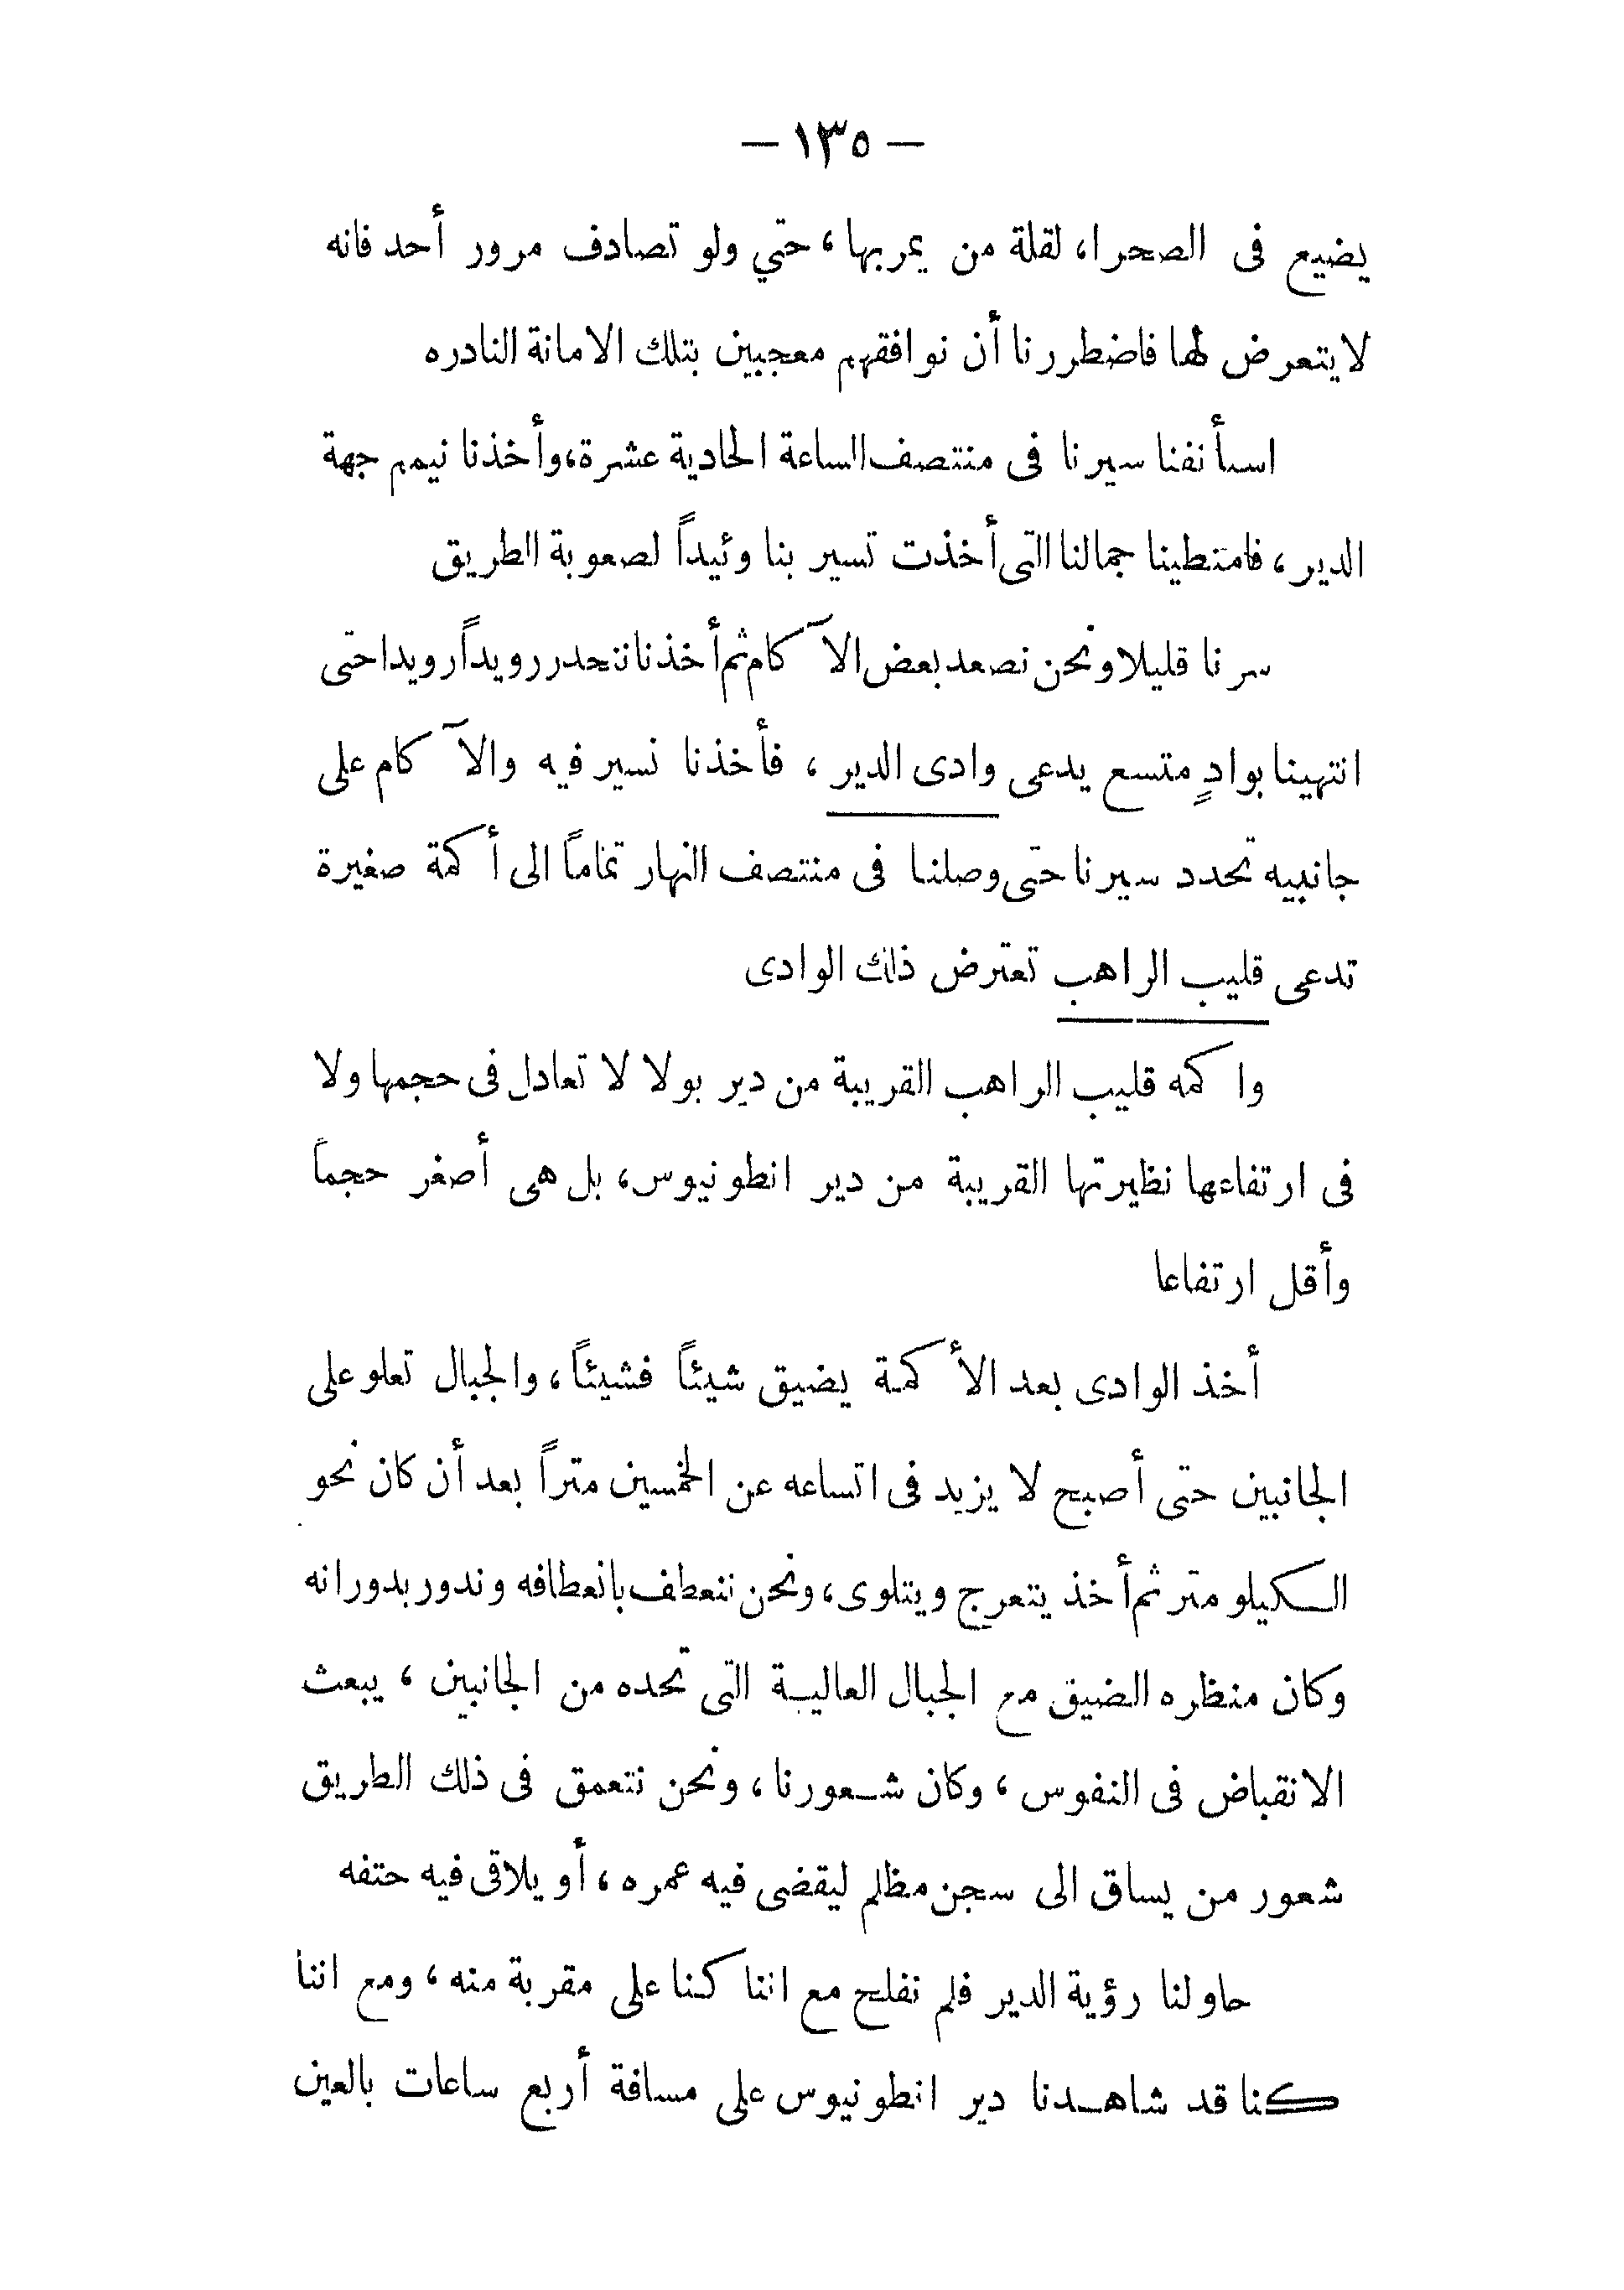 — ١٣٥ —
يضيع فى الصحراء لقلة من يمر بها ، حتي ولو تصادف مرور أحد فانه
لا يتعرض لها فاضطررنا أن نوافقهم معجبين بتلك الامانة النادره
اسأنفنا سيرنا فى منتصف الساعة الحادية عشرة ، وأخذنا نيمم جهة
الدير ، فامتطينا جمالنا التى أخذت تسير بنا وئيداً لصعوبة الطريق
سرنا قليلا ونحن نصعد بعض الآكام ثم أخذنا ننحدر رويداً رويدا حتى
انتهينا بوادٍ متسع يدعى وادى الدير ، فأخذنا نسير فيه والآكام على
جانبيه تحدد سيرنا حتى وصلنا فى منتصف النهار تماماً الى أكمة صغيرة
تدعى قليب الراهب تعترض ذلك الوادى
واكمه قليب الراهب القريبة من دير بولا لا تعادل فى حجمها ولا
فى ارتفاعها نظيرتها القريبة من دير انطونيوس ، بل هى أصغر حجماً
وأقل ارتفاعا
أخذ الوادى بعد الأكمة يضيق شيئاً فشيئاً ، والجبال تعلو على
الجانبين حتى أصبح لا يزيد فى اتساعه عن الخمسين متراً بعد أن كان نحو
الكيلو متر ثم أخذ يتعرج ويتلوى ، ونحن ننعطف بانعطافه وندور بدورانه
وكان منظره الضيق مع الجبال العالية التى تحده من الجانبين ، يبعث
الانقباض فى النفوس ، وكان شعورنا ، ونحن نتعمق فى ذلك الطريق
شعور من يساق الى سجن مظلم ليقضى فيه عمره ، أو يلاقى فيه حتفه
حاولنا رؤية الدير فلم نفلح مع اننا كنا على مقربة منه ، ومع اننا
كنا قد شاهدنا دير انطونيوس على مسافة أربع ساعات بالعين